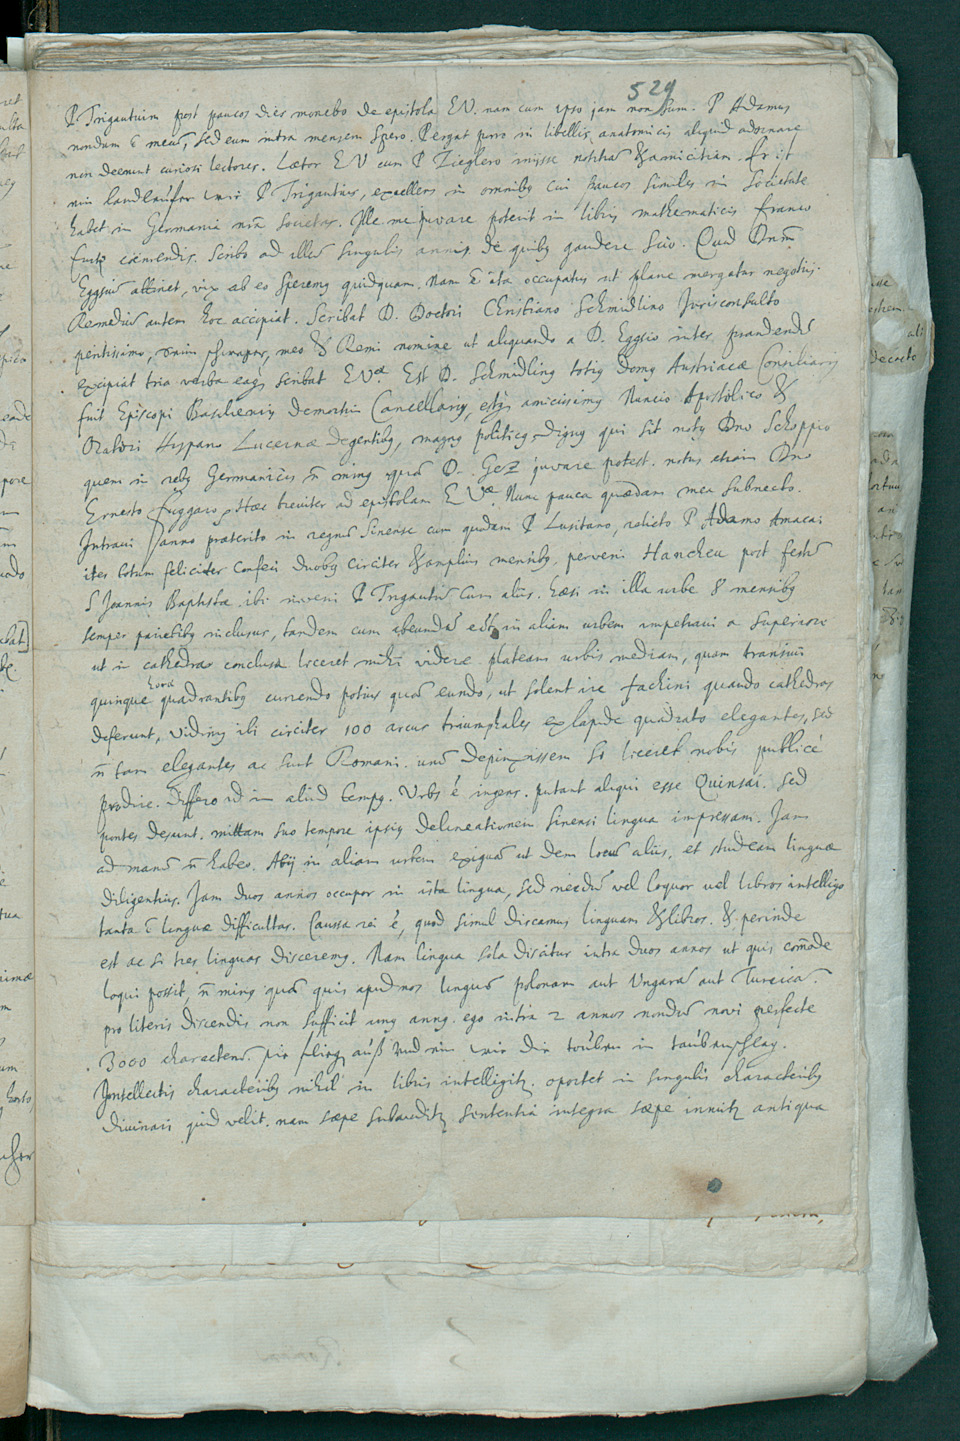 529
P. Trigautium post paucos dies monebo de epistola EV. nam cum ipso jam non sum. P Adamus
nondum ē meus, sed eum intra mensem spero. Pergat porro in libellis anatomicis aliquid adornare
non deerunt curiosi lectores. Lætor E V cum P Zieglero inijsse notitiā & amicitiam. Er ist
ein landtläufer wie P Trigautius, excellens in omnibꝫ cui paucos similes in Societate
habet in Germania nr̄a Societas. Ille me juvare poterit in libris mathematicis Franco
furto coemendis. Scribo ad illū singulis annis. de quibꝫ gaudere scio. Quod Dnm̄
Eggsiū attinet, vix ab eo speremꝫ quidquam. Nam ē ita occupatus ut plane mergatur negotijs.
Remediū autem hoc accipiat. Scribat D. Doctori Christiano Schmidlino Jurisconsulto
peritissimo, meo & Remi nomine ut aliquando a D. Eggsio inter prandendū
excipiat tria verba eaqꝫ scribat E Vꝫ. Est D. Schmidlinꝫ totiꝫ domꝫ Austriacæ Consiliariꝫ
fuit Episcopi Basiliensis demortui Cancellariꝫ, estqꝫ amicissimꝫ Nuncio Apostolico &
Oratori Hispano Lucernæ degentibꝫ, magnꝫ politicꝫ dignꝫ qui sit notꝫ Dno Schoppio
quem in rebꝫ Germanicis n̄ minꝫ quā D. juvare potest. notus etiam Dno
Ernesto Fuggaro. Hæc breviter ad epistolam E Væ. Nunc pauca quædam mea subnecto.
Intravi anno præterito in regnū Sinense cum quodam P Lusitano, relicto P Adamo Amacai
iter totum feliciter confeci duobꝫ circiter & amplius mensibꝫ, perveni Hancheu post festū
S Joannis Baptistæ. ibi inveni P Trigautiū cum aliis. Hæsi in illa urbe 8 mensibꝫ
semper parietibꝫ inclusus, tandem cum abeundū esset in aliam urbem impetravi a superiore
ut in cathedra conclusa liceret mihi videre plateam urbis mediam, quam transivi
quinque horæ quadrantibꝫ currendo potius quā eundo, ut solent ire fachini quando cathedras
deferunt, vidimꝫ ibi circiter 100 arcus triumphales ex lapide quadrato elegantes, sed
n̄ tam elegantes ac sunt Romani. unū depinxissem si liceret nobis publicé
prodire. Differo id in aliud tempꝫ. Urbs é ingens. putant aliqui esse Quinsai. sed
pontes desunt. mittam suo tempore ipsiꝫ delineationem sinensi lingua impressam. Jam
ad manū n̄ habeo. Abij in aliam urbem exiguā ut dem locū aliis, et studeam linguæ
diligentius. Jam duos annos occupor in ista lingua, sed necdū vel loquor vel libros intelligo
tanta ē linguæ difficultas. Caussa rei é, quod simul discamus linguam & libros. & perinde
est ac si tres linguas discereremꝫ. Nam lingua sola discitur intra duos annos ut quis com̄ode
loqui possit, n̄ minꝫ quā quis apud nos linguā polonam aut Ungarā aut Turcicā.
pro literis discendis non sufficit unꝫ annꝫ. ego intra 2 annos nondū novi perfecte
3000 characterū. sie fliegē auß undt ein wie die tauben in taubenschlag.
Intellectis characteribꝫ nihil in libris intelligitꝫ. oportet in singulis characteribꝫ
divinari quid velit. nam sæpe subauditꝫ sententia integra sæpe innuitꝫ antiqua